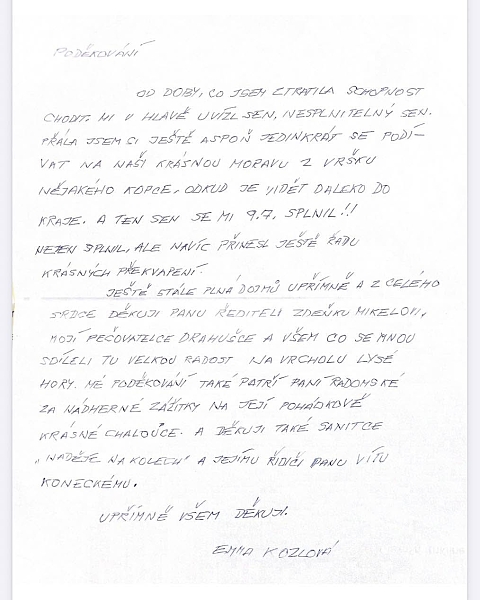 PODĚKOVÁNÍ
OD DOBY, CO JSEM ZTRATILA SCHOPNOST
CHODIT. MI V HLAVĚ UVÍZL SEN, NESPLNITELNÝ SEN.
PŘÁLA JSEM SI JEŠTĚ ASPOŇ JEDINKRÁT SE PODÍ-
VAT NA NAŠI KRÁSNOU MORAVU Z VRŠKU
NĚJAKÉHO KOPCE, ODKUD JE VIDĚT DALEKO DO
KRAJE. A TEN SEN SE MI 9.7. SPLNIL!!
NEJEN SPLNIL, ALE NAVÍC PŘINESL JEŠTĚ ŘADU
KRÁSNÝCH PŘEKVAPENÍ.
JEŠTĚ STÁLE PLNÁ DOJMŮ UPŘÍMNĚ A Z CELÉHO
SRDCE DĚKUJI PANU ŘEDITELI ZDEŇKU MIKELOVI,
MOJÍ PEČOVATELCE DRAHUŠCE A VŠEM CO SE MNOU
SDÍLELI TU VELKOU RADOST NA VRCHOLU LYSÉ
HORY. MÉ PODĚKOVÁNÍ TAKÉ PATŘÍ PANÍ RADOMSKÉ
ZA NÁDHERNÉ ZÁŽITKY NA JEJÍ POHÁDKOVĚ
KRÁSNÉ CHALOUPCE. A DĚKUJI TAKÉ SANITCE
„NADĚJE NA KOLECH" A JEJÍMU ŘIDIČI PANU VÍTU
KONECKÉMU.
UPŘÍMNĚ VŠEM DĚKUJI.
EMMA KOZLOVÁ